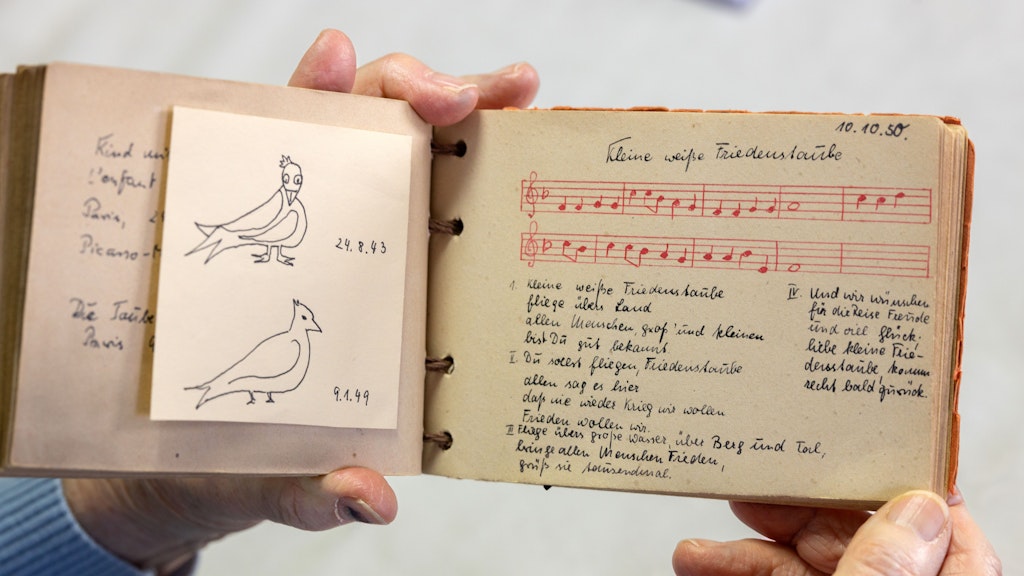 Kind
L'enfant
Paris,
Picasso-
Die Taube
Paris
24.8.43
9.1.49
10.10.50.
Kleine weiße Friedenstaube
1. Kleine weiße Friedenstaube
fliege übers Land
allen Menschen, groß' und kleinen
bist Du gut bekannt.
II. Du sollst fliegen, Friedenstaube
allen sag es hier
daß nie wieder Krieg wir wollen
Frieden wollen wir.
III Fliege übers große Wasser, über Berg und Tal,
bringe allen Menschen Frieden,
grüß sie tausendmal.
IV. Und wir wünschen
für die Reise Freude
und viel Glück.
liebe kleine Frie-
denstaube komm
recht bald zurück.